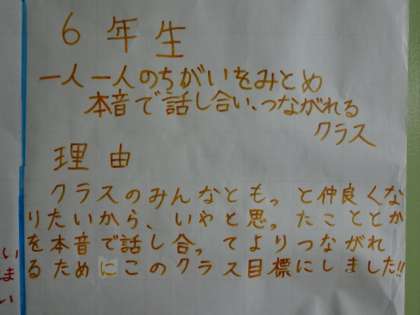 6年生
一人一人のちがいをみとめ
本音で話し合い、つながれる
クラス
理由
クラスのみんなともっと仲良くな
りたいから、いやと思ったこととか
を本音で話し合ってよりつながれ
るためにこのクラス目標にしました!!
い
ま
い